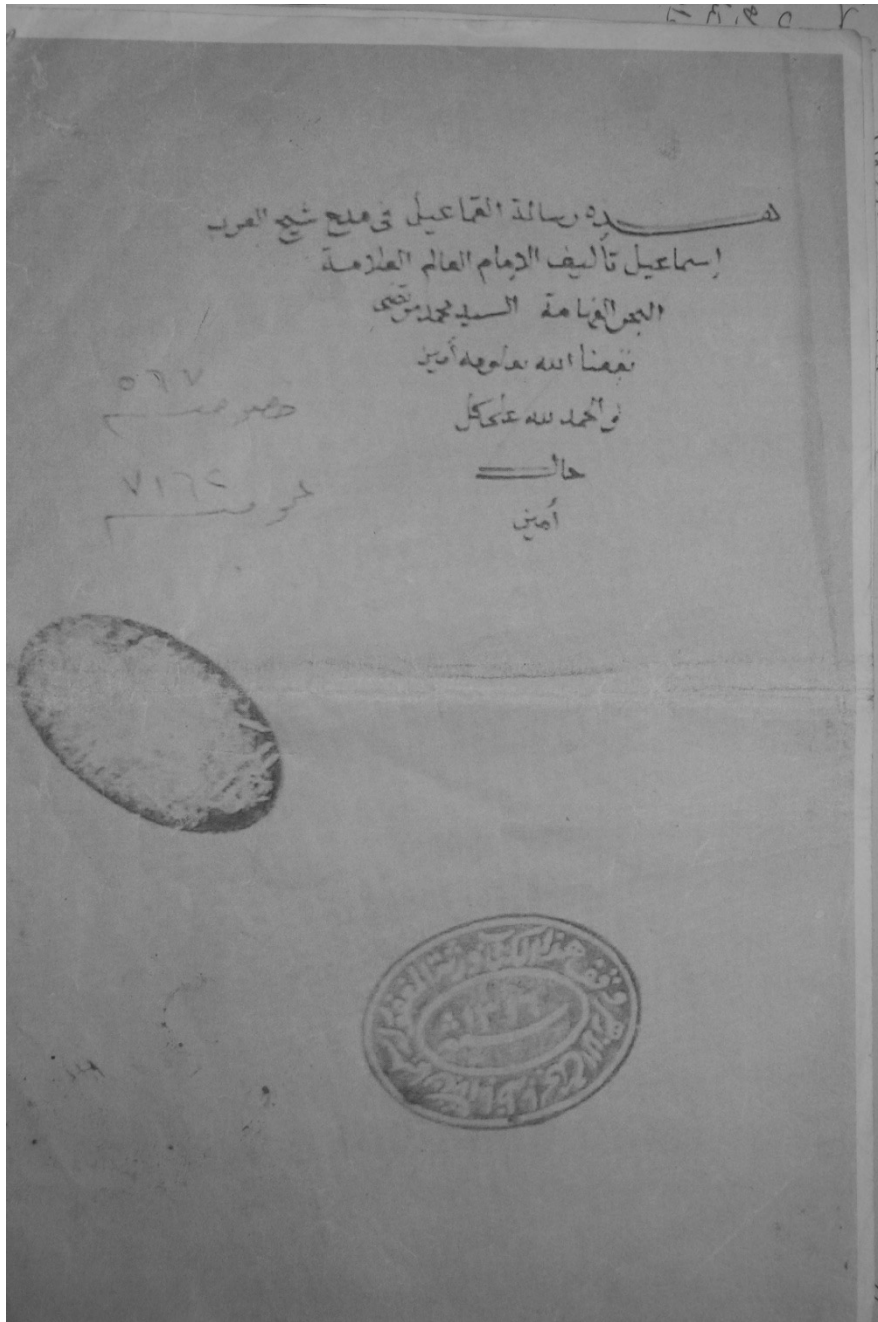 هذه رسالة القماعيل في مدح شيخ العرب
إسماعيل تأليف الإمام العالم العلامة
البحر الفهامة السيد محمد مرتضى
نفعنا الله بعلومه أمين
والحمد لله على كل
حال
أمين
٥٦٧
خصوصية
٧١٦٢
عمومية
وقف هذا الكتاب ورثة المغفور له